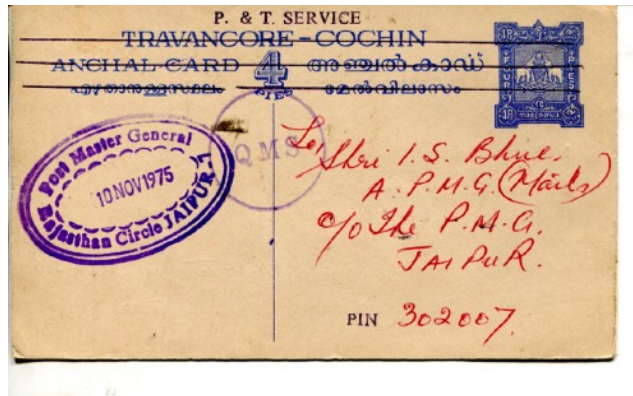 P. & T. SERVICE
TRAVANCORE-COCHIN
ANCHAL-CARD 4 അഞ്ചൽകാഡ്
PIES
എഴുതാനുള്ളസ്ഥലം മേൽവിലാസം
FOUR PIES
Post Master General
10 NOV 1975
Rajasthan Circle JAIPUR-7
QMS
To,
Shri I.S. Bhue.
A.P.M.G. (Mails)
c/o The P.M.G.
JAIPUR.
PIN 302007.